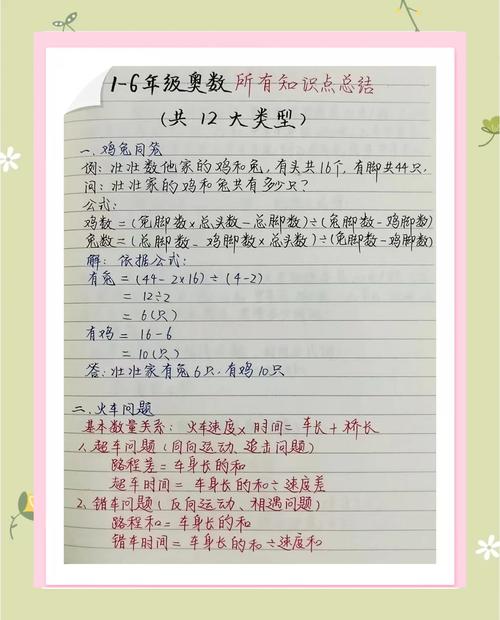 1-6年级奥数所有知识点总结
(共 12 大类型)
一、鸡兔同笼
例: 壮壮数他家的鸡和兔, 有头共16个, 有脚共44只,
问: 壮壮家的鸡和兔共有多少只?
公式:
鸡数=(兔脚数×总头数-总脚数)÷(兔脚数-鸡脚数)
兔数=(总脚数-鸡脚数×总头数)÷(兔脚数-鸡脚数)
解: 依据公式:
有兔=(44-2×16)÷(4-2)
=12÷2
=6(只)
有鸡=16-6
=10(只)
答: 壮壮家有兔6只, 有鸡10只
二、火车问题
基本数量关系: 火车速度×时间=车长+桥长
1、超车问题(同向运动、追击问题)
路程差=车身长的和
超车时间=车身长的和÷速度差
2、错车问题(反向运动、相遇问题)
路程和=车身长的和
错车时间=车身长的和÷速度和